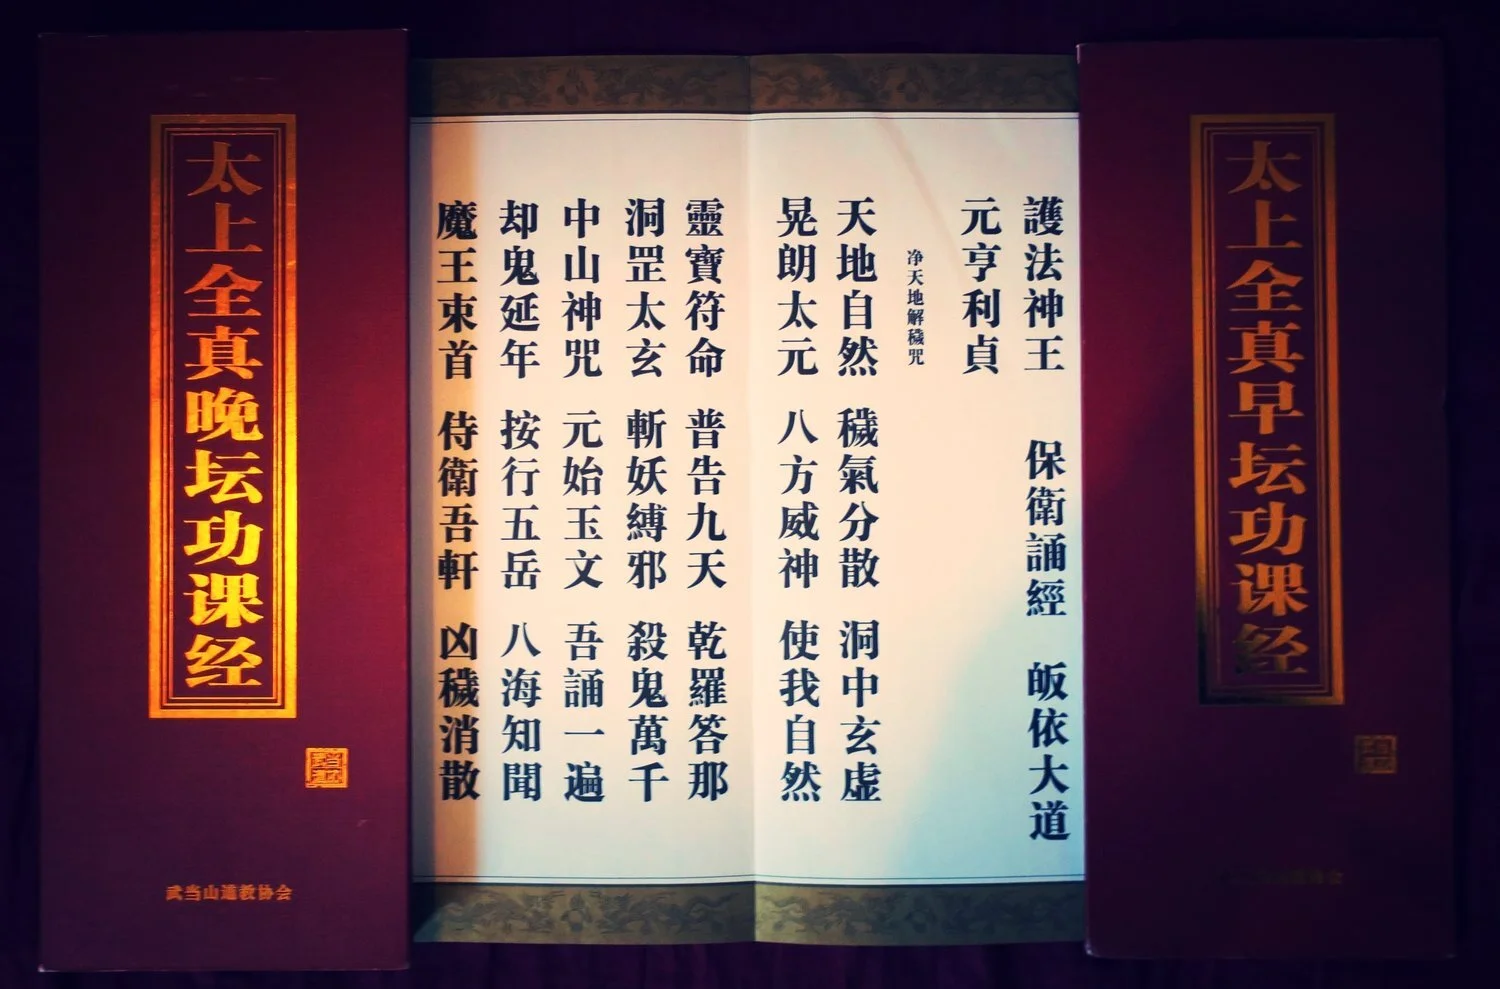 太上全真早坛功课经
護法神王 保衛誦經 皈依大道
元亨利貞
净天地解穢咒
天地自然 穢氣分散 洞中玄虛
晃朗太元 八方威神 使我自然
靈寶符命 普告九天 乾羅答那
洞罡太玄 斬妖縛邪 殺鬼萬千
中山神咒 元始玉文 吾誦一遍
却鬼延年 按行五岳 八海知聞
魔王束首 侍衛吾軒 凶穢消散
太上全真晚坛功课经
武当山道教协会